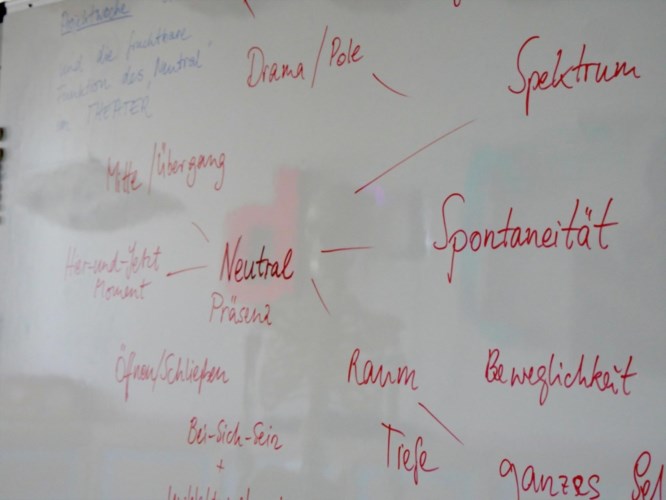 und die fruchtbare
Funktion des "Neutral"
im THEATER
Drama/Pole
Spektrum
Mitte/Übergang
Spontaneität
Hier-und-Jetzt
Moment
Neutral
Präsenz
Öffnen/Schließen
Raum
Beweglichkeit
Bei-Sich-Sein
+
Tiefe
ganzes